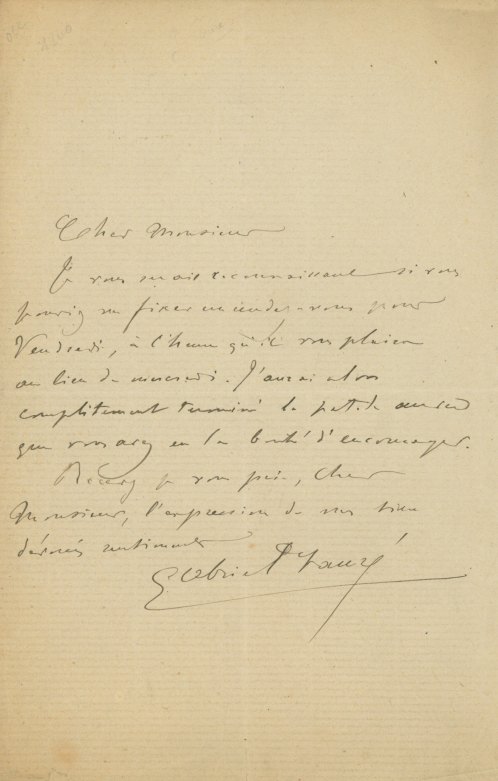 Cher Monsieur
Je vous serais reconnaissant si vous
pouviez me fixer un rendez-vous pour
Vendredi, à l'heure qu'il vous plaira
au lieu de mercredi. J'aurai alors
complètement terminé le
que vous avez eu la bonté d'encourager.
Recevez je vous prie, Cher
Monsieur, l'expression de mes bien
dévoués sentiments
Gabriel Fauré